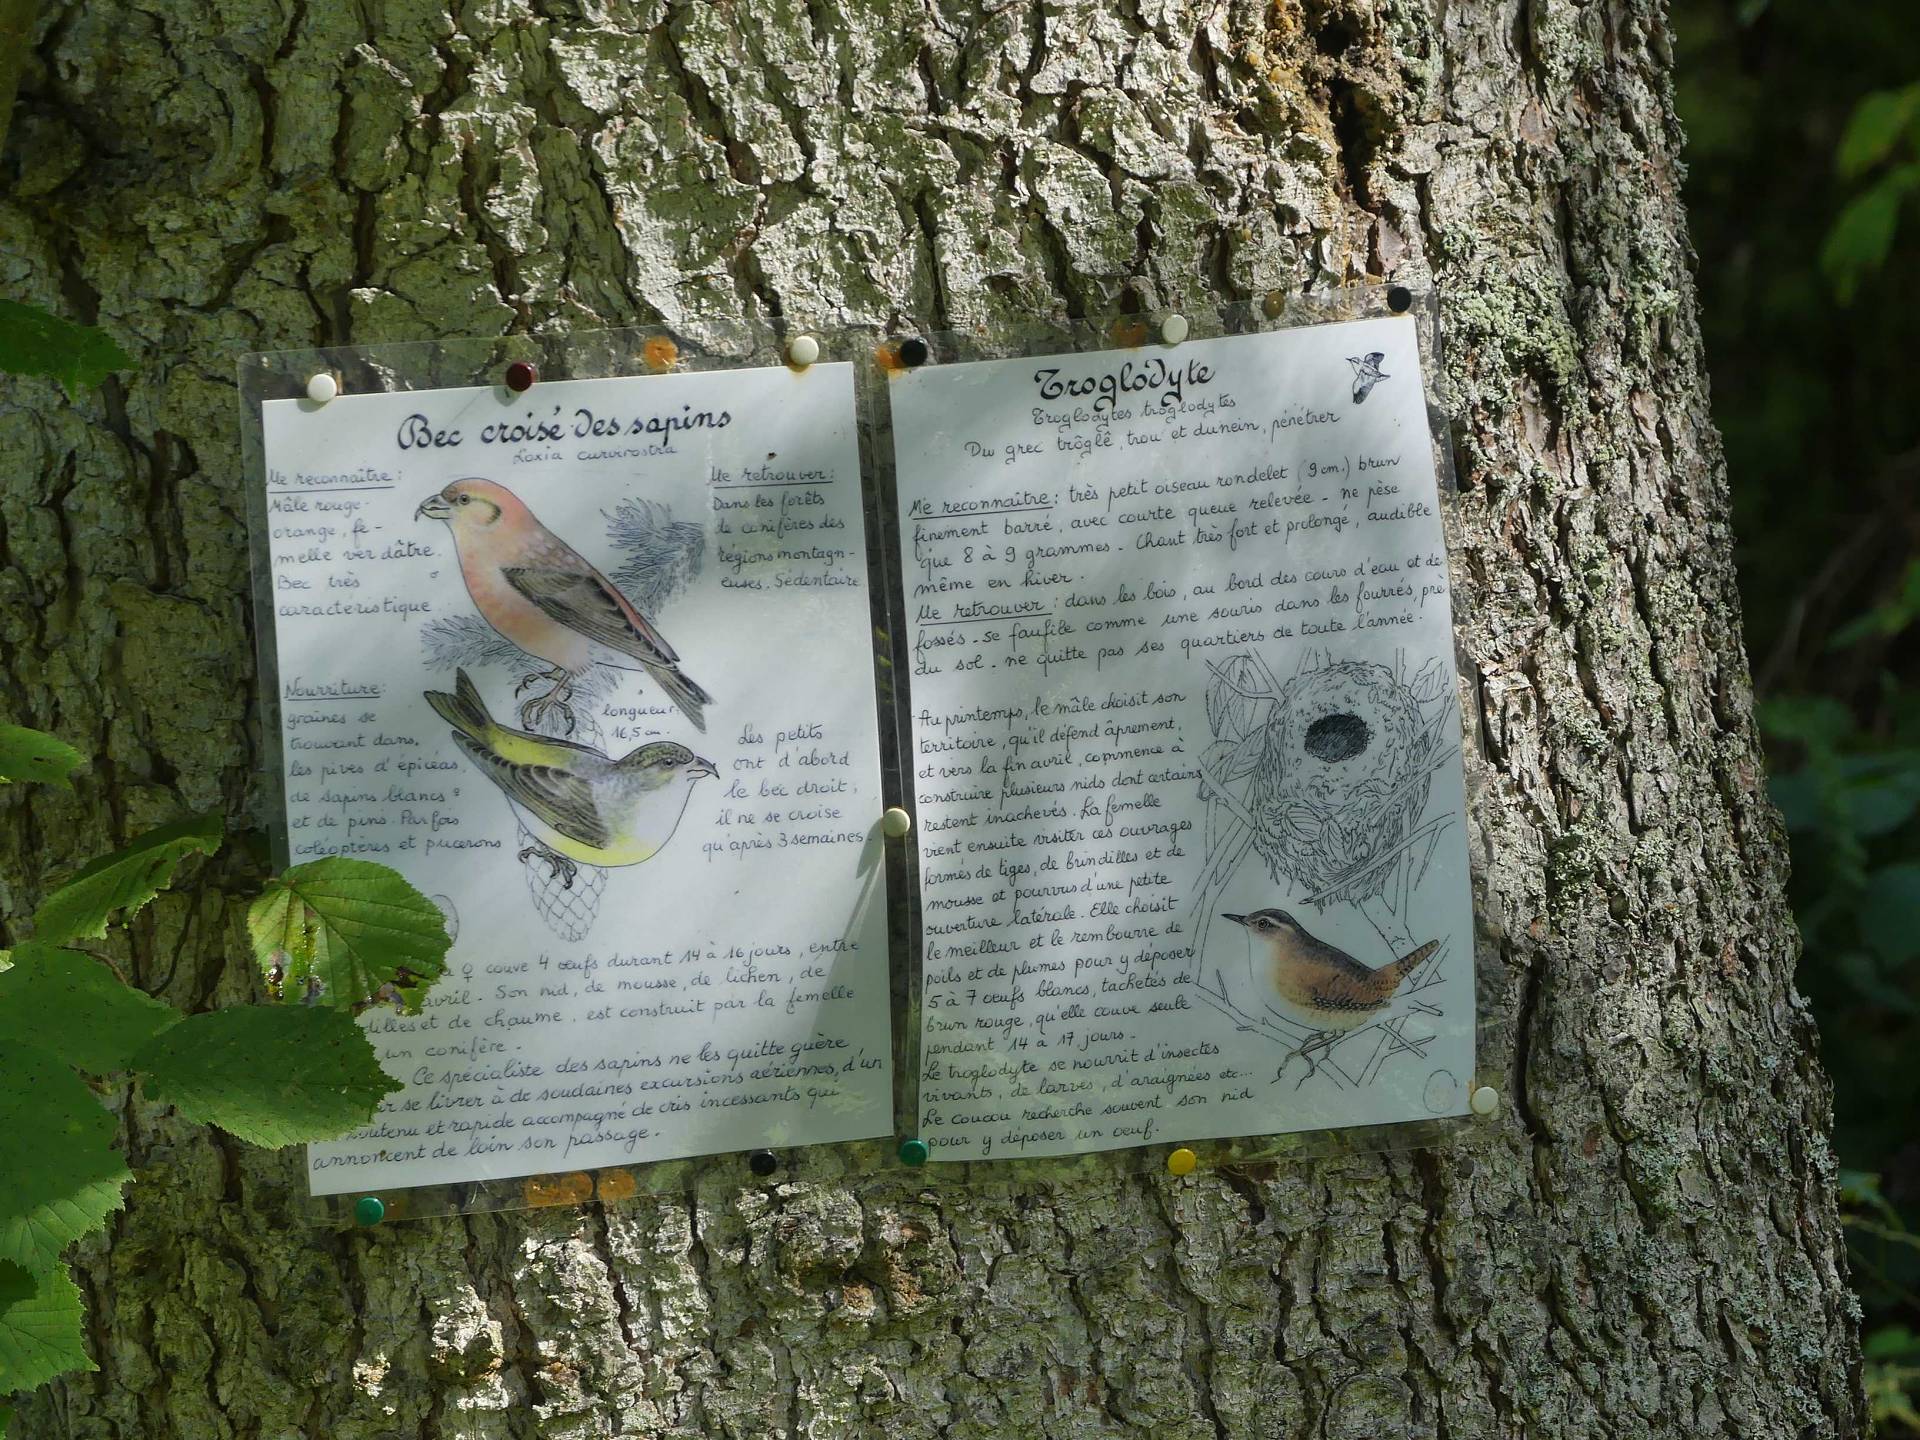 Bec croisé des sapins
Loxia curvirostra
Me reconnaître :
Mâle rouge-
orange, fe-
melle verdâtre.
Bec très
caractéristique
Me retrouver :
Dans les forêts
de conifères des
régions montagn-
euses. Sédentaire
Nourriture :
graines se
trouvant dans,
les pives d'épicéas,
de sapins blancs
et de pins. Parfois
coléoptères et pucerons
longueur.
16,5 cm.
Les petits
ont d'abord
le bec droit,
il ne se croise
qu'après 3 semaines.
♀ couve 4 œufs durant 14 à 16 jours, entre
avril - Son nid, de mousse, de lichen, de
et de chaume, est construit par la femelle
un conifère.
Ce spécialiste des sapins ne les quitte guère
se livrer à de soudaines excursions aériennes, d'un
et rapide accompagné de cris incessants qui
annoncent de loin son passage.
Troglodyte
Troglodytes troglodytes
Du grec trôglê, trou et dunein, pénétrer
Me reconnaître : très petit oiseau rondelet (9 cm.) brun
finement barré, avec courte queue relevée - ne pèse
que 8 à 9 grammes - Chant très fort et prolongé, audible
même en hiver.
Me retrouver : dans les bois, au bord des cours d'eau et de
fossés - se faufile comme une souris dans les fourrés, prè
du sol - ne quitte pas ses quartiers de toute l'année.
Au printemps, le mâle choisit son
territoire, qu'il défend âprement,
et vers la fin avril, commence à
construire plusieurs nids dont certains
restent inachevés. La femelle
vient ensuite visiter ces ouvrages
formés de tiges, de brindilles et de
mousse et pourvus d'une petite
ouverture latérale. Elle choisit
le meilleur et le rembourre de
poils et de plumes pour y déposer
5 à 7 œufs blancs, tachetés de
brun rouge, qu'elle couve seule
pendant 14 à 17 jours.
Le troglodyte se nourrit d'insectes
vivants, de larves, d'araignées etc...
Le coucou recherche souvent son nid
pour y déposer un œuf.